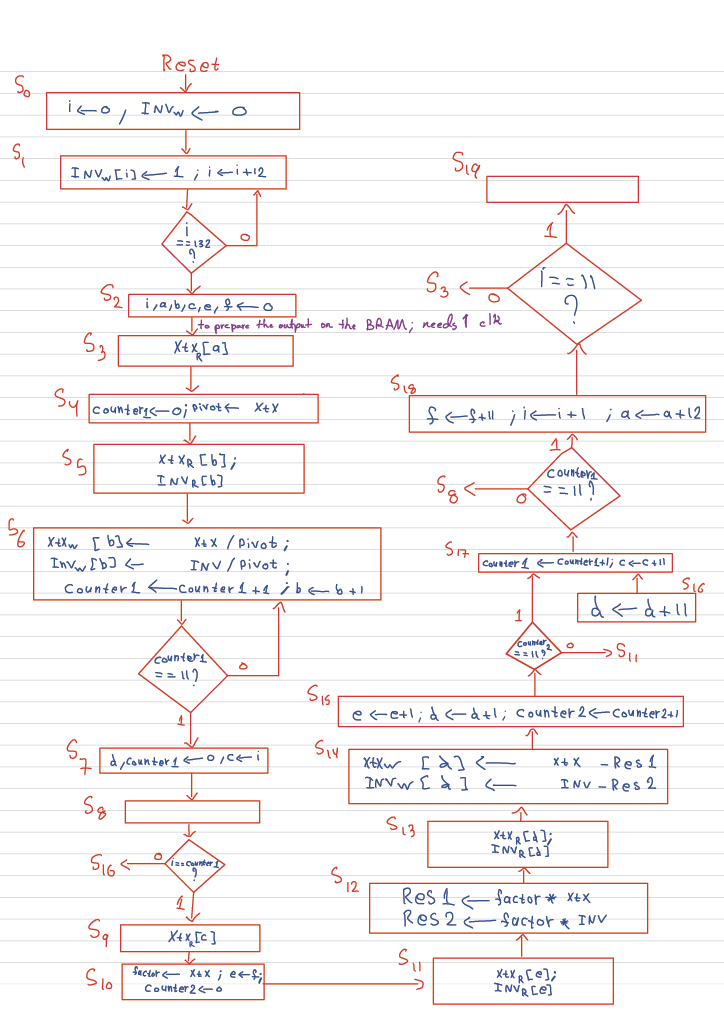 Reset
S0
i ← 0 , INVw ← 0
S1
INVw[i] ← 1 ; i ← i+12
i
==132
?
0
S2
i,a,b,c,e,f ← 0
to prepare the output on the BRAM; needs 1 clk
S3
XtXR[a]
S4
Counter1 ← 0; pivot ← XtX
S5
XtXR[b];
INVR[b]
S6
XtXw [b] ← XtX / Pivot;
Invw[b] ← INV / Pivot;
Counter1 ← Counter1 +1 ; b ← b+1
Counter1
== 11?
0
1
S7
d, Counter1 ← 0, C ← i
S8
i==Counter1
?
0
S16
1
S9
XtXR[c]
S10
factor ← XtX ; e ← f;
Counter2 ← 0
S11
XtXR[e];
INVR[e]
S12
Res1 ← factor * XtX
Res2 ← factor * INV
S13
XtXR[d];
INVR[d]
S14
XtXw [d] ← XtX - Res1
INVw [d] ← INV - Res2
S15
e ← e+1; d ← d+1; Counter2 ← Counter2+1
Counter2
== 11?
0
S11
1
S16
d ← d+11
S17
Counter1 ← Counter1+1; C ← C+11
Counter1
== 11?
0
S8
1
S18
f ← f+11 ; i ← i+1 ; a ← a+12
i==11
?
0
S3
1
S19